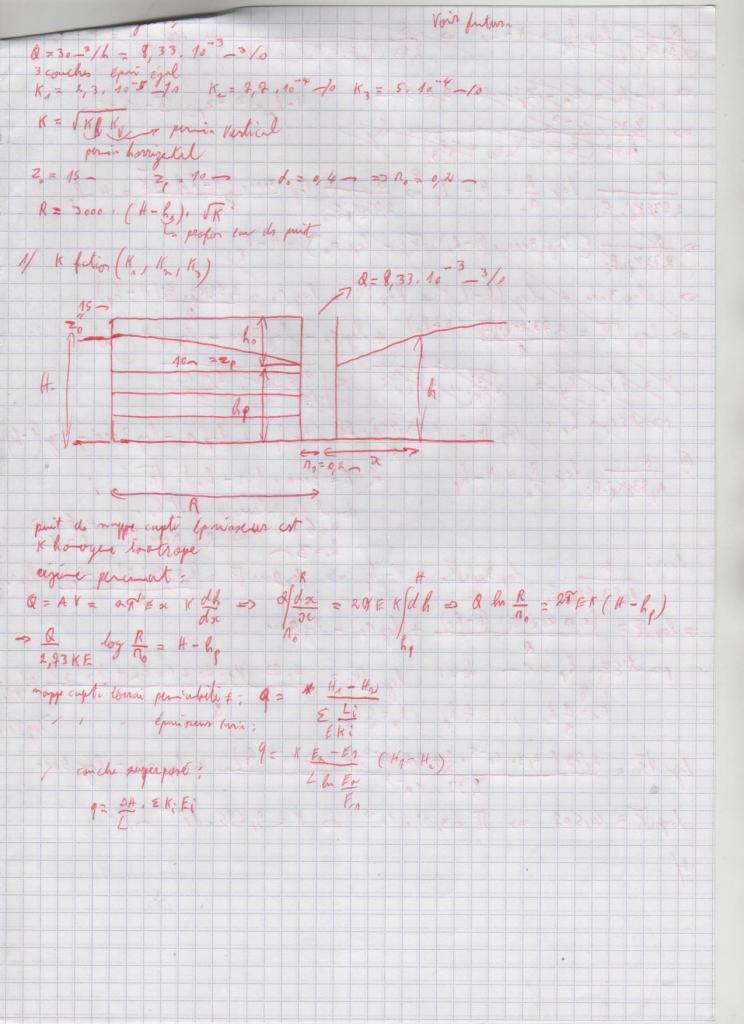 Voir futur
Q = 30 m³/h = 8,33 . 10⁻³ m³/s
3 couches épais égal
K₁ = 2,3 . 10⁻⁵ m/s K₂ = 7,7 . 10⁻⁴ m/s K₃ = 5 . 10⁻⁴ m/s
K = √(Kh Kv) → perméa vertical
perméa horrizontal
z₀ = 15 m zp = 10 m d₀ = 0,4 m => r₀ = 0,2 m
R = 3000 . (H - hp) . √K
1/ K fction (K₁, K₂, K₃)
Q = 8,33 . 10⁻³ m³/s
15 m
z₀
h₀
10m = zp
H
hp
h
r₀ = 0,2 m
x
R
puit de nappe captif épaisseur cst
K homogène isotrope
régime permanent :
Q = A V = 2π E x K dh/dx => Q ∫ r₀ R dx/x = 2π E K ∫ hp H dh => Q ln R/r₀ = 2π E K (H - hp)
=> Q/2,73 K E log R/r₀ = H - hp
nappe captif terrai perméabilité ≠ : q = H₁ - H₂ / Σ Li/E Ki
" " " épaisseur varia :
q = K E₂ - E₁ / L ln E₂/E₁ (H₁ - H₂)
couche superposé :
q = ΔH/L . Σ Ki Ei